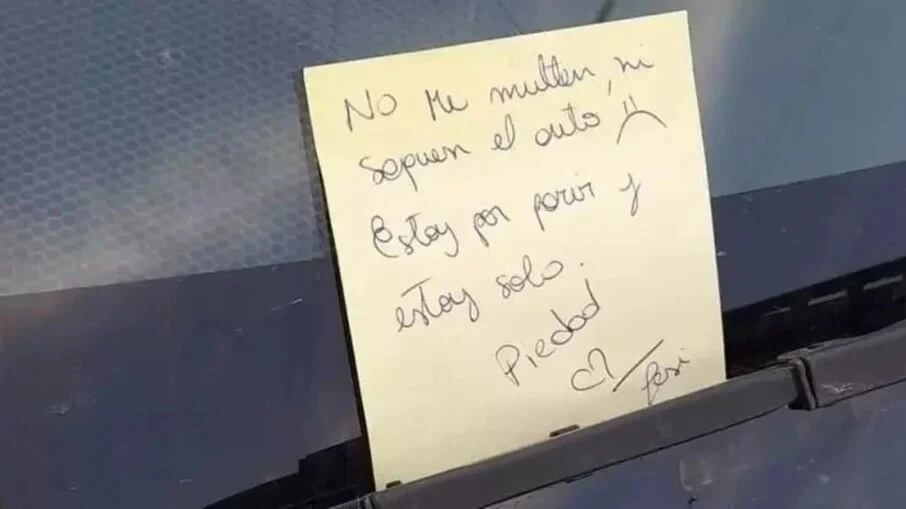 No me multen, ni
saquen el auto :(
Estoy por parir y
estoy solo.
Piedad